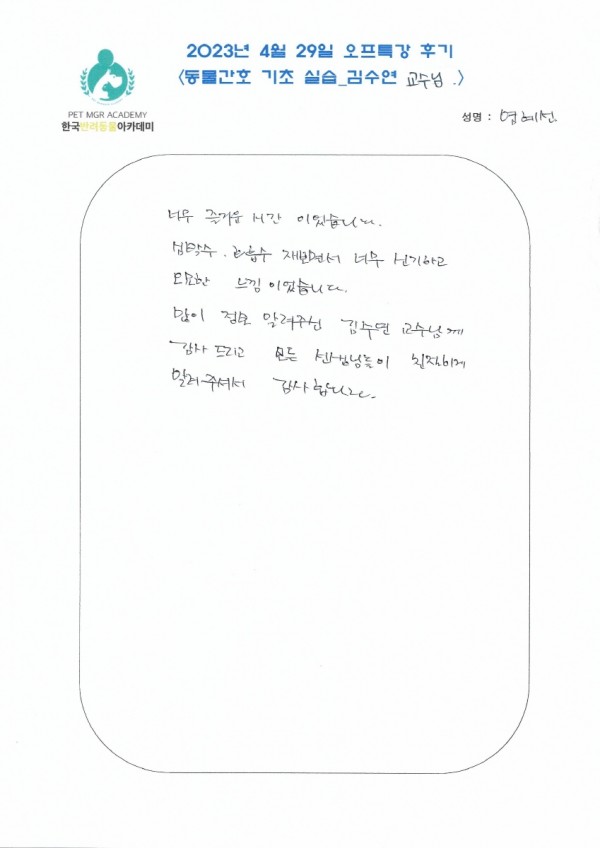 2023년 4월 29일 오프특강 후기
<동물간호 기초 실습_김수연 교수님.>
PET MGR ACADEMY
한국반려동물아카데미
성명 : 엄혜선
너무 즐거운 시간 이었습니다.
심박수. 호흡수 재보면서 너무 신기하고
오묘한 느낌이었습니다.
많이 정보 알려주신 김수연 교수님께
감사 드리고 모든 선생님들이 친절하게
알려주셔서 감사합니다.